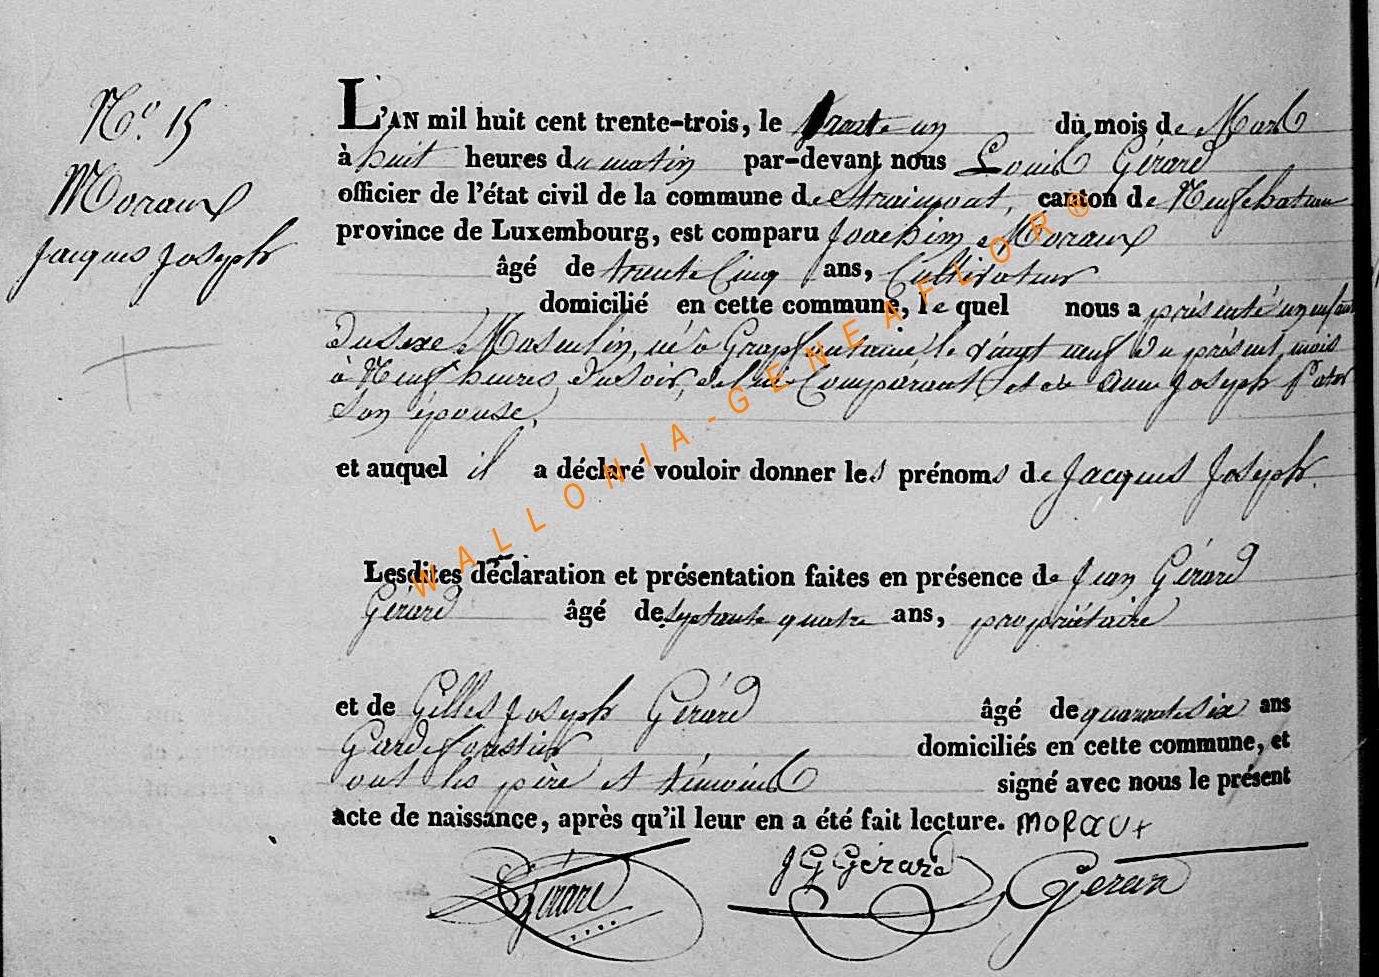 N.° 15
Moraux
Jacques Joseph
L'AN mil huit cent trente-trois, le trente un du mois de Mars
à huit heures du matin par-devant nous Louis Gérard
officier de l'état civil de la commune de Straimont, canton de Neufchateau
province de Luxembourg, est comparu Joachim Moraux
âgé de trente Cinq ans, Cultivateur
domicilié en cette commune, le quel nous a présenté un enfant
du sexe Masculin, né à Grapfontaine le vingt neuf du présent mois
à Neuf heures du soir, de lui Comparant et de Anne Joseph
son épouse,
et auquel il a déclaré vouloir donner les prénoms de Jacques Joseph.
Lesdites déclaration et présentation faites en présence de Jean Gérard
Gérard âgé de septante quatre ans, propriétaire
et de Gilles Joseph Gérard âgé de quarante six ans
Garde forestier domiciliés en cette commune, et
ont les père et témoins signé avec nous le présent
acte de naissance, après qu'il leur en a été fait lecture. MORAUX
LGérard JG Gerard Gerard
WALLONIA-GENEAFLOR®